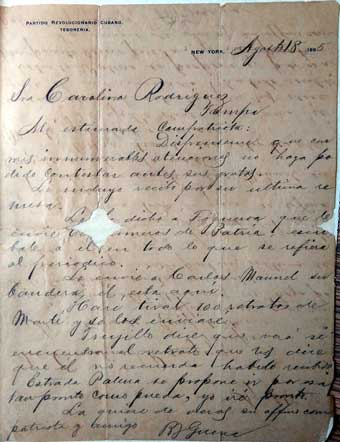 PARTIDO REVOLUCIONARIO CUBANO.
TESORERIA.
NEW YORK, Agosto 18 1895
Sra Carolina Rodriguez
Tampa
Mi estimada Compatriota:
Dispenseme que con
mis innumerables atenciones no haya po
dido contestar antes sus gratas.
Le incluyo recibo por su ultima re
mesa.
dicho a Figueroa que le
envie numeros de Patria y escri
bale a él en todo lo que se refiera
al periodico.
La enviará Carlos Manuel su
bandera, él esta aqui.
Hare tirar 100 retratos de
Marti y se los enviare.
Trujillo dice que vará si
encuentra el retrato que Vd dice
que él no recuerda haberlo recibido
Estrada Palma se propone ir por esa
tan pronto como pueda, yo iré pronto.
La quiere de veras su affmo com
patriota y amigo B J Guerra